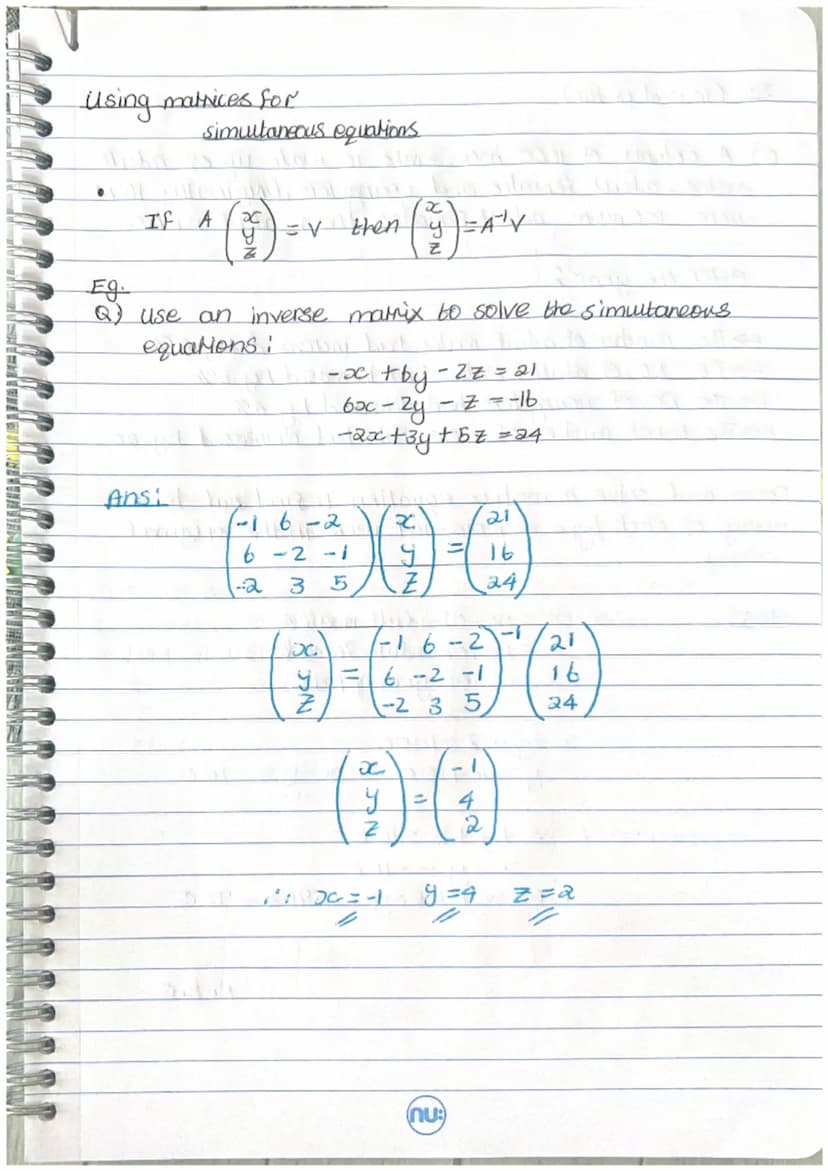 Using matrices for
simultaneous equations
• If A (x y z) = V then (x y z) = A⁻¹V
Eg.
Q) Use an inverse matrix to solve the simultaneous
equations:
-x + 6y - 2z = 21
6x - 2y - z = -16
-2x + 3y + 5z = 24
Ans:
(-1 6 -2) (x) (21)
(6 -2 -1) (y) = (16)
(-2 3 5) (z) (24)
(x) (-1 6 -2)⁻¹ (21)
(y) = (6 -2 -1) (16)
(z) (-2 3 5) (24)
(x) (-1)
(y) = (4)
(z) (2)
∴ x = -1 y = 4 z = 2
nu: